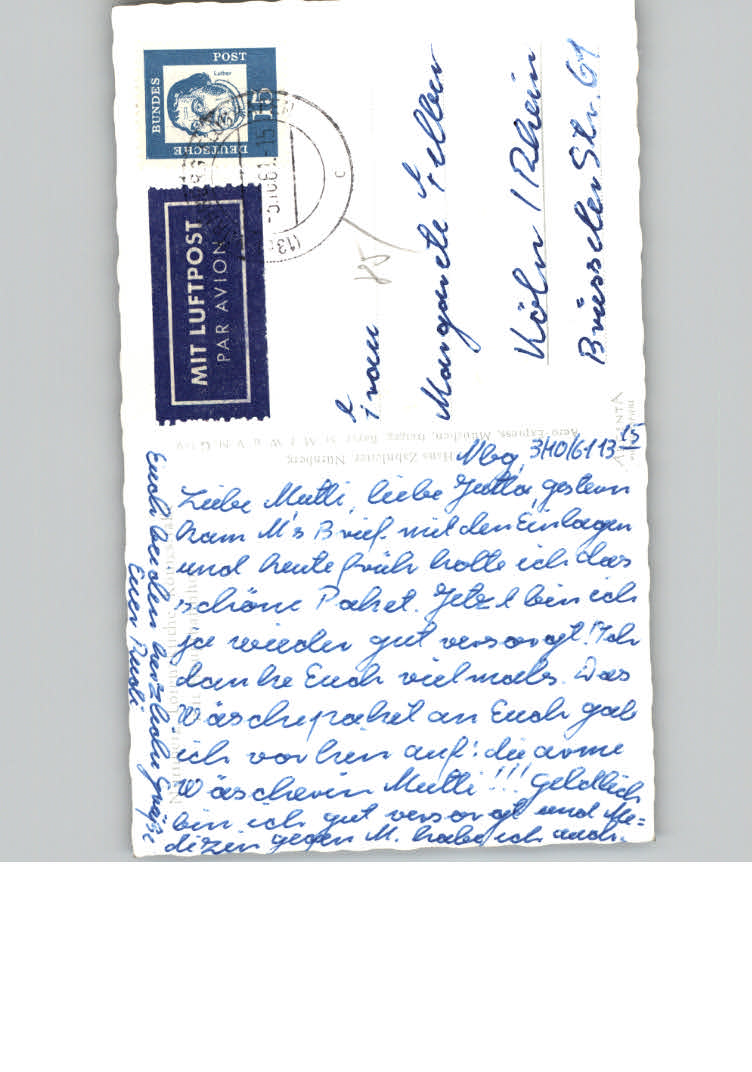 DEUTSCHE
BUNDES
POST
Luther
15
MIT LUFTPOST
PAR AVION
Frau
Margarete
Köln / Rhein
Brüsseler Str. 61
85
Aero-Express, München,
Hans Zahnleiter, Nürnberg
Nbg, 3/10/61 13 15
Liebe Mutti, liebe Jutta, gestern
kam M's Brief mit den Einlagen
und heute früh holte ich das
schöne Paket. Jetzt bin ich
ja wieder gut versorgt! Ich
danke Euch vielmals. Das
Wäschepaket an Euch gab
ich vorhin auf: die arme
Wäscherin Mutti!!! Geldlich
bin ich gut versorgt und Me=
dizin gegen M. habe ich auch.
Euch beiden herzliche Grüße
Euer Rudi